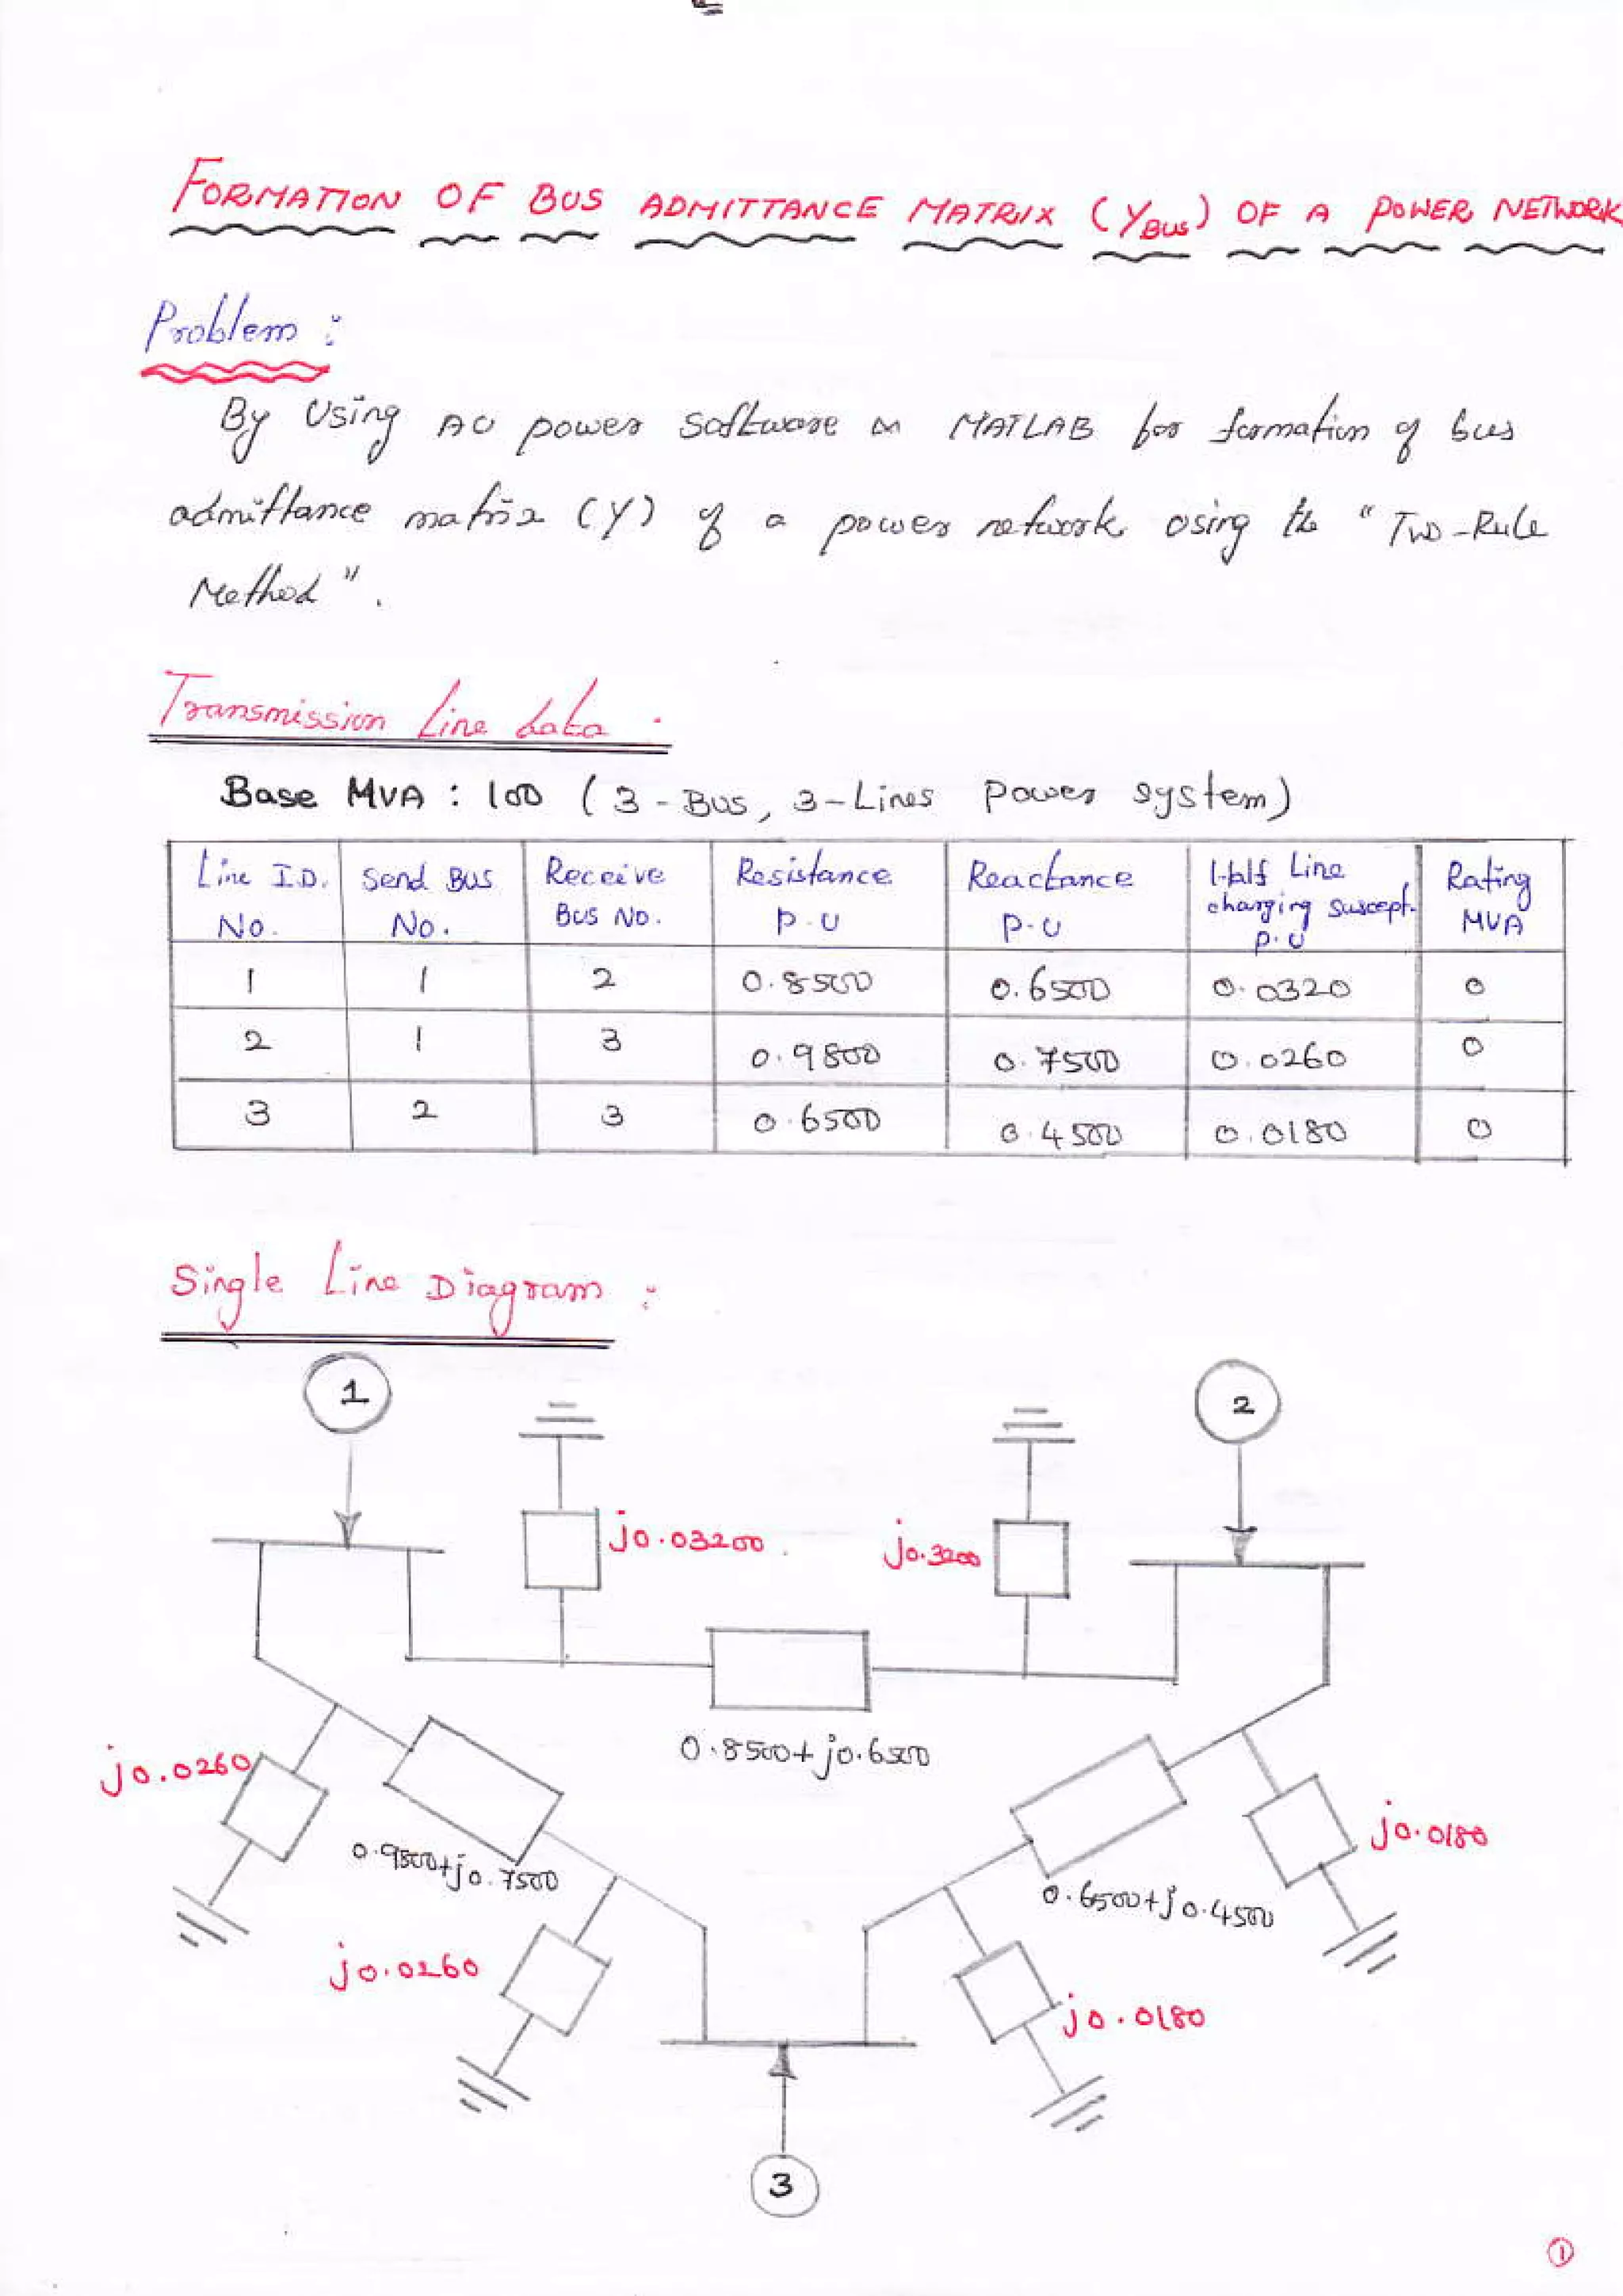 FORMATION OF BUS ADMITTANCE MATRIX (YBus) OF A POWER NETWORK
Problem :
By Using AU power Software or MATLAB for formation of bus
admittance matrix (Y) of a power network using the "Two-Rule
Method".
Transmission Line data :
Base MVA : 100 (3-Bus, 3-Lines Power system)
Line I.D. No. Send Bus No. Receive Bus No. Resistance P.U Reactance P.U Half Line charging suscept. P.U Rating MVA
1 1 2 0.8500 0.6500 0.0320 0
2 1 3 0.9800 0.7500 0.0260 0
3 2 3 0.6500 0.4500 0.0180 0
Single Line Diagram :
1
2
j0.03200
j0.3200
0.8500+j0.6500
j0.0260
j0.0180
0.9500+j0.7500
0.6500+j0.4500
j0.0260
j0.0180
3
1